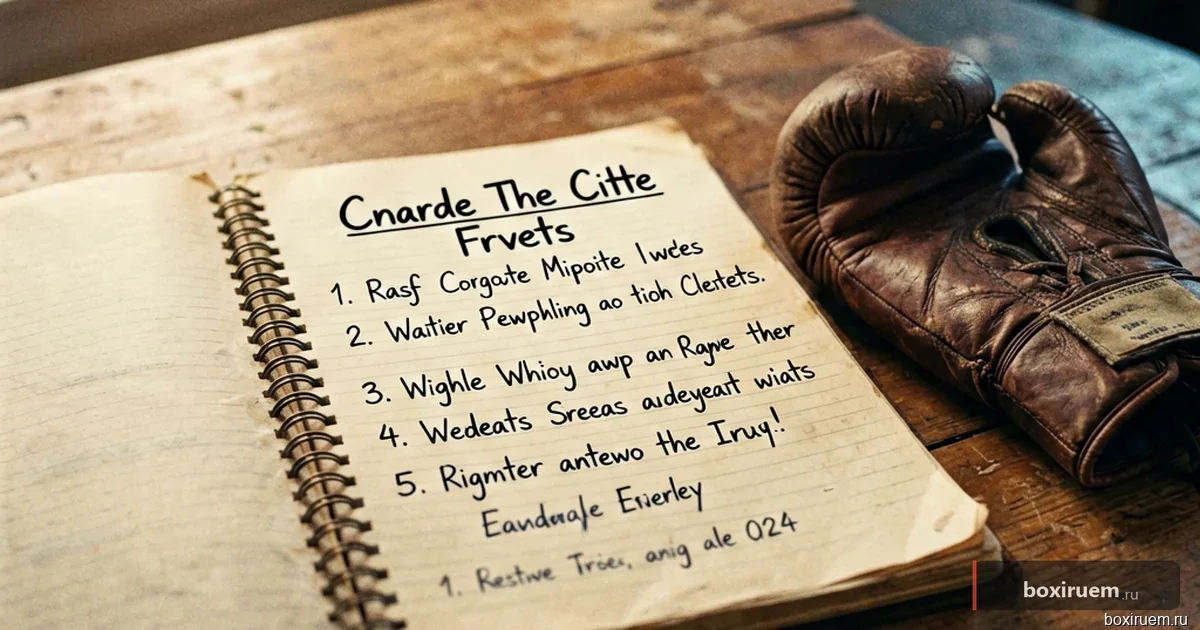 Cnarde The Citte
Frvets
1. Rasf Corgate Mipoite Iwdes
2. Waitier Pewphling ao tioh Cleitets.
3. Wighle Whioy awp an Ragve ther
4. Wedeats Sreeas audeyeart wiats
5. Rigmter antewo the Iruy!
Eandorale Eiverley
1. Restive Tries, anig ale 024
boxiruem.ru
boxiruem.ru